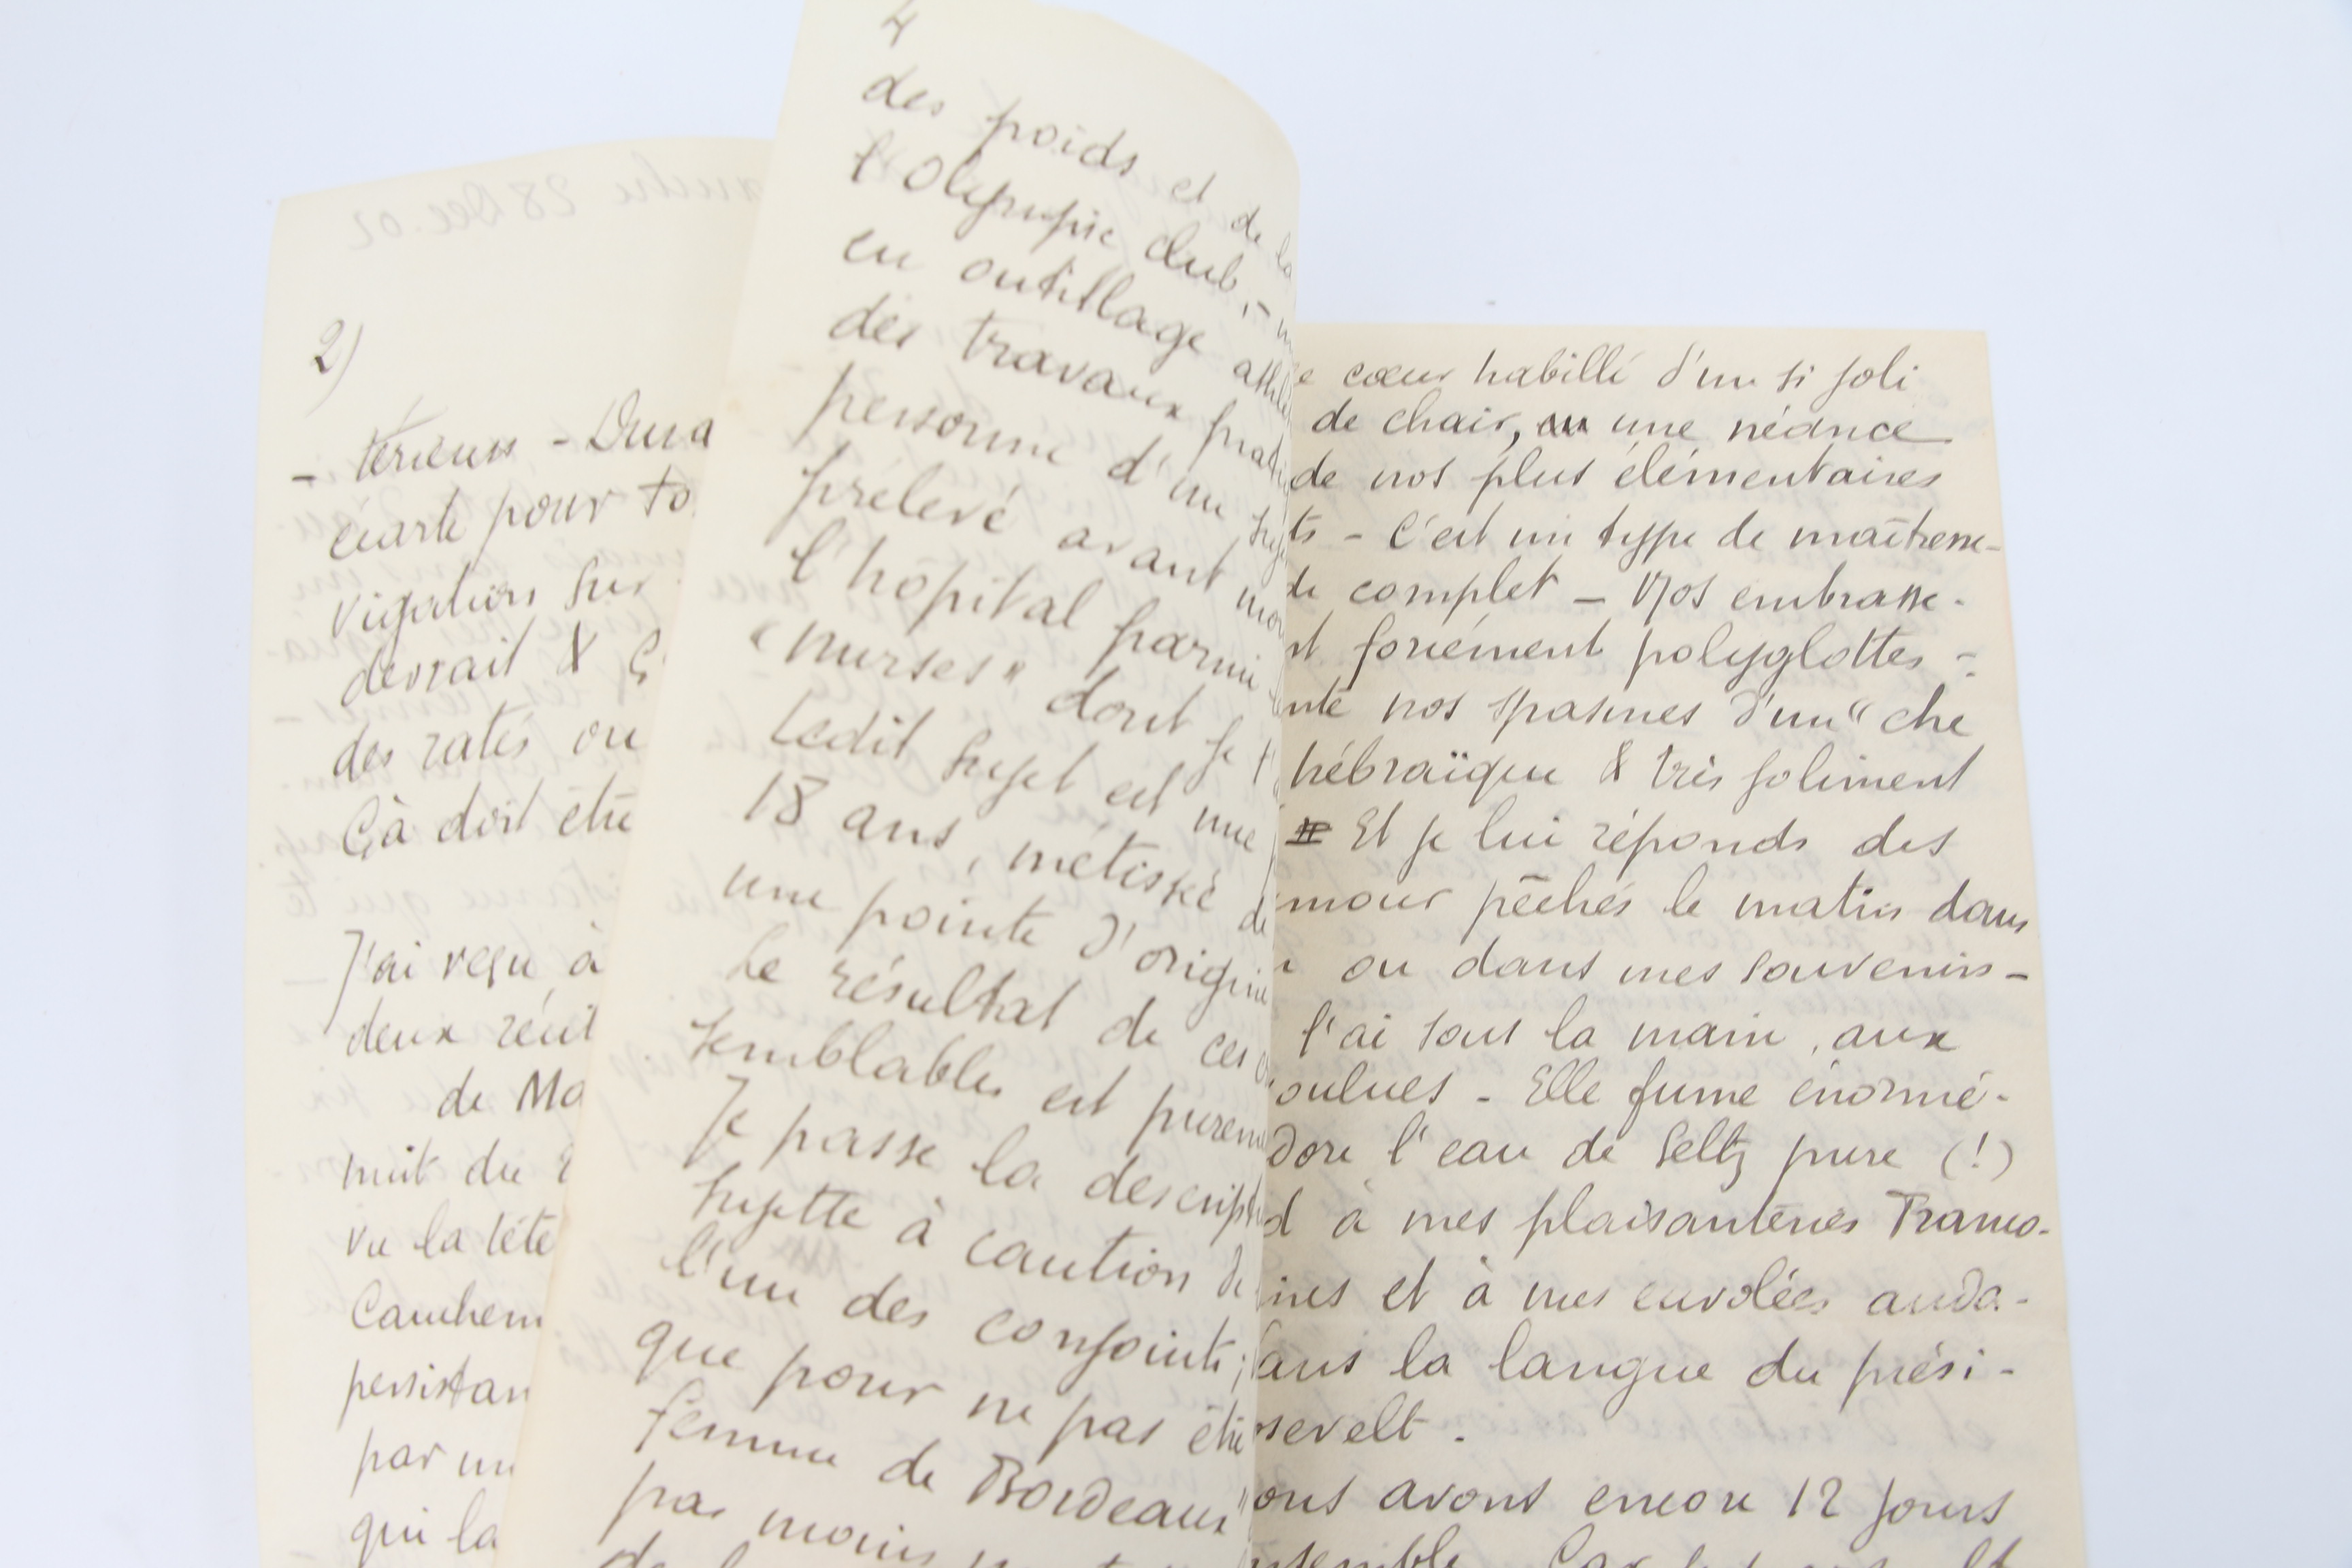 2)
- térieurs - Dura
écarte pour to
vigation sur
devrait &
des ratés ou
Çà doit être
J'ai reçu à
deux
de Ma
nuit du
vu la tête
persistan
par un
qui la
4
des poids et de la
l'Olympic club, -
en outillage
des travaux
personne d'un
prélevé avant
l'hôpital parmi
"nurses" dont je
Ledit sujet est une
18 ans, métissée de
une pointe d'origine
Le résultat de ces
semblables est
Je passe la
sujette à caution de
l'un des conjoints;
que pour ne pas être
femme de Bordeaux"
pas moins
cœur habillé d'un si joli
de chair, une séance
de nos plus élémentaires
ts - C'est un type de maîtresse-
complet - Nos embrasse-
forcément polyglottes -
nos spasmes d'un "che
hébraïque & très joliment
Et je lui réponds des
mour pêchés le matin dans
ou dans mes souvenirs -
l'ai sous la main, aux
oulues - Elle fume énormé-
dore l'eau de Seltz pure (!)
d à mes plaisanteries Franco-
et à mes envolées auda-
ans la langue du prési-
sevelt.
ous avons encore 12 jours